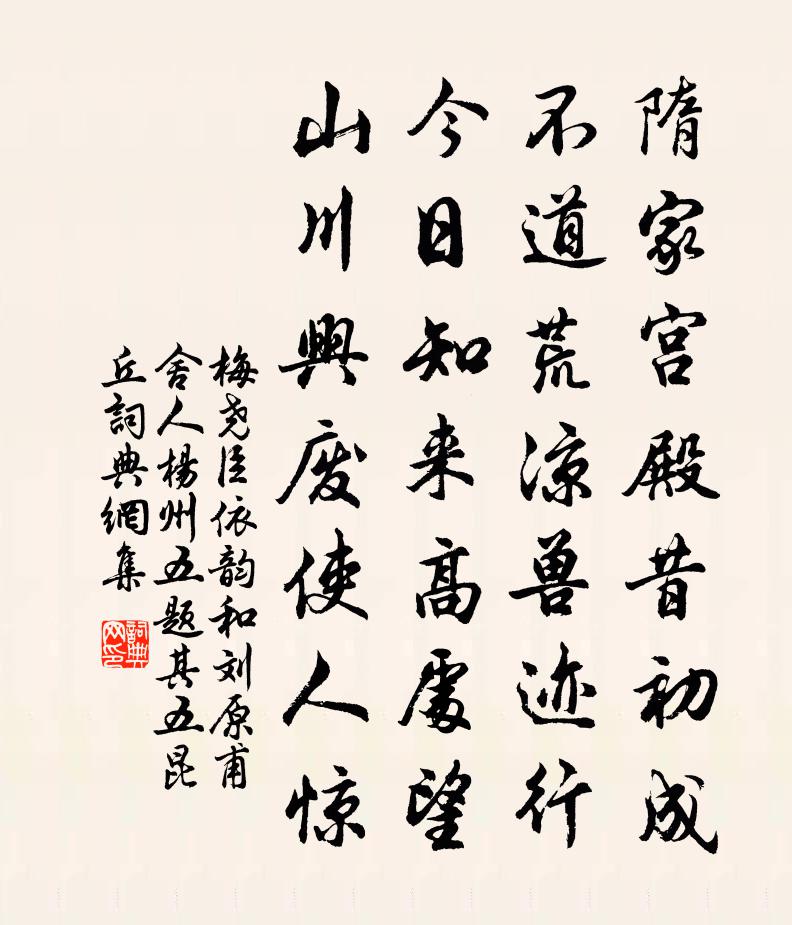 隋家宫殿昔初成
不道荒凉兽迹行
今日知来高處望
山川興废使人惊
梅尧臣依韵和刘原甫
舍人楊州五题其五昆
丘詞典網集
詞典网印